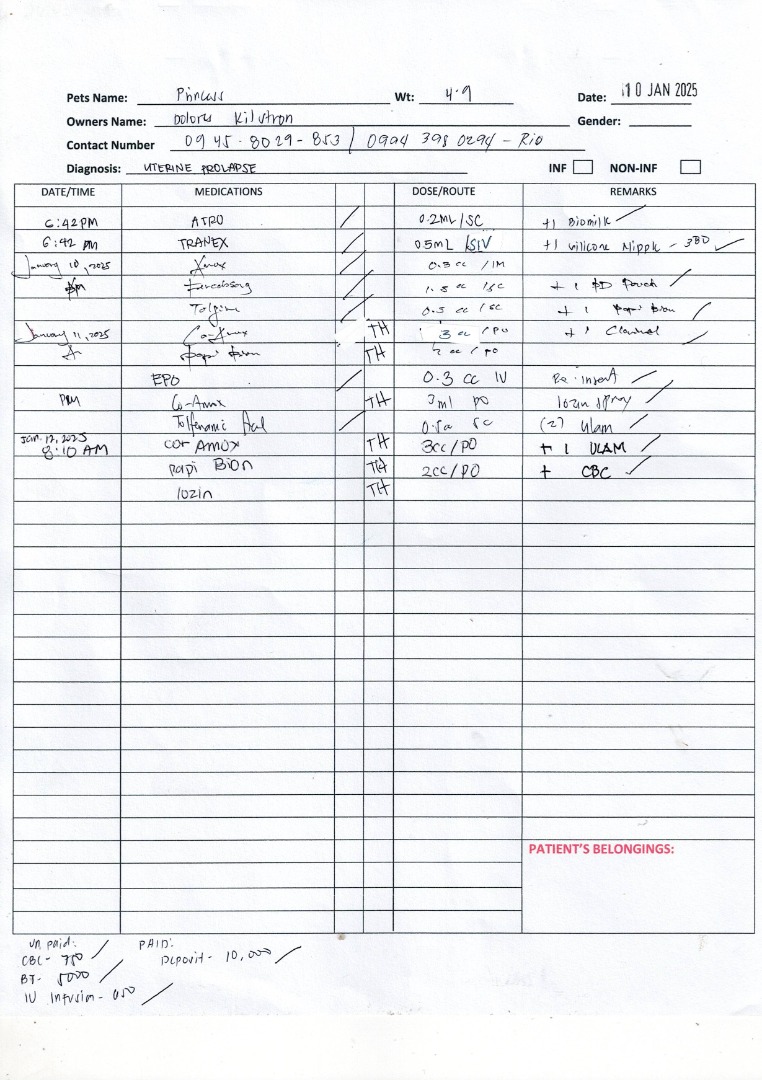 Pets Name: Princess Wt: 4.9 Date: 10 JAN 2025
Owners Name: Dolores Gender:
Contact Number 0945-8029-853 / 0994 398 0294 - Rio
Diagnosis: UTERINE PROLAPSE INF NON-INF
DATE/TIME MEDICATIONS DOSE/ROUTE REMARKS
6:42PM ATRO 0.2ML/SC +1 Biomilk
6:42 PM TRANEX 05mL /SIV +1 silicone Nipple - 380
January 10, 2025 0.5 cc /IM
1.5 cc /sc + 1 PD Pouch
Tolfine 0.5 cc /sc + 1 Papi Bion
January 11, 2025 Co-Amox TH 3 cc /PO + 1
Papi Bion TH 2 cc / po
EPO 0.3 cc IV Re-insert
PM Co-Amox TH 3ml po 10zin spray
Tolfenamic sc (2) ulam
JAN. 12, 2025
8:10 AM AMOX TH 3cc/PO + 1 ULAM
papi Bion TH 2cc/PO + CBC
10zin TH
PATIENT'S BELONGINGS:
un paid: PAID:
CBC- 750 Deposit- 10,000
BT- 5000
IV Infusion-